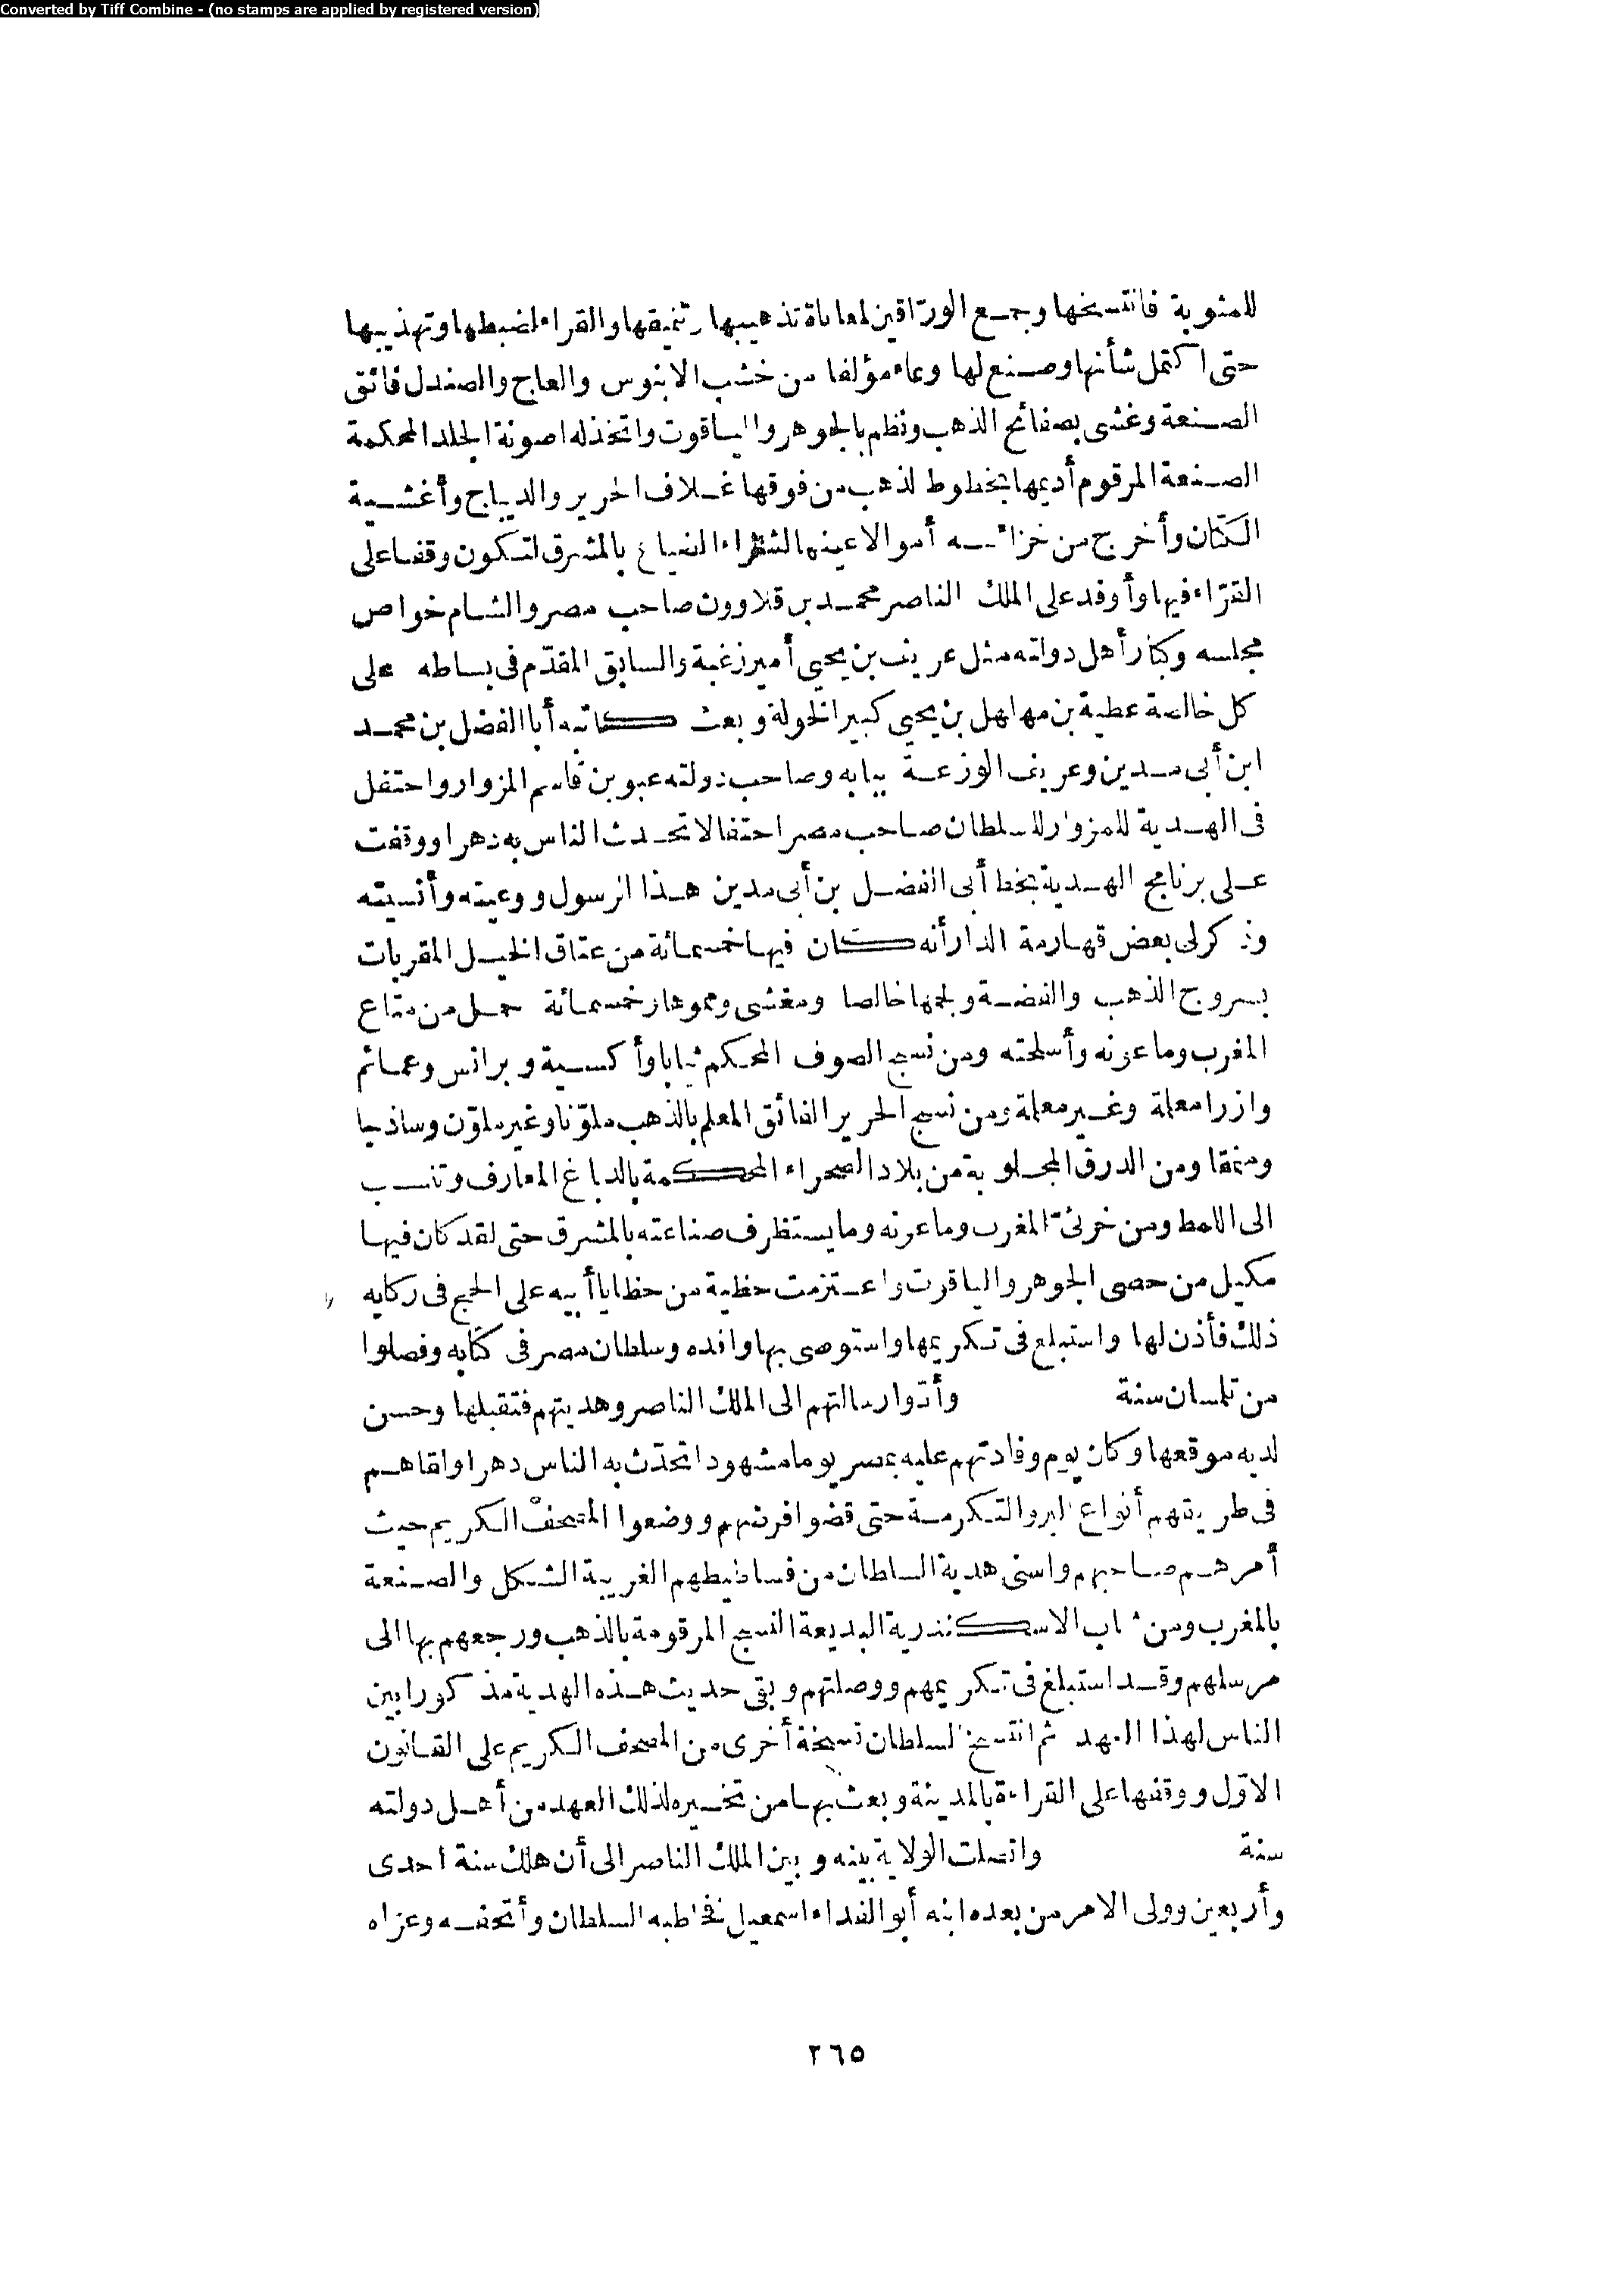 Converted by Tiff Combine - (no stamps are applied by registered version)
للمثوبة فانتسخها وجمع الورّاقين لمعاناة تذهيبها وتنميقها والقراء لضبطها وتهذيبها
حتى اكتمل شأنها وصنع لها وعاء مؤلفا من خشب الابنوس والعاج والصندل فائق
الصنعة وغشى بصفائح الذهب ونظم بالجوهر والياقوت واتخذ له اصونة الجلد المحكمة
الصنعة المرقوم أديمها بخطوط الذهب من فوقها غلاف الحرير والديباج وأغشية
الكتان وأخرج من خزائنه أموالا عينها لشراء الضياع بالمشرق لتكون وقفا على
القرّاء فيها وأوفد على الملك الناصر محمد بن قلاوون صاحب مصر والشام خواص
مجلسه وكبار أهل دولته مثل عريف بن يحيى أمير زغبة والسابق المقدّم فى بساطه على
كل خالصة عطية بن مهلهل بن يحيى كبير الخولة وبعث كاتبه أبا الفضل بن محمد
ابن أبى مدين وعريف الوزعة ببابه وصاحب دولته عبو بن قاسم المزوار واحتفل
فى الهدية للمزوار للسلطان صاحب مصر احتفالا تحدث الناس به دهرا ووقفت
على برنامج الهدية بخط أبى الفضل بن أبى مدين هذا الرسول ووعيته وأنسيته
وذكر لى بعض قهارمة الدار أنه كان فيها خمسمائة من عتاق الخيل المقربات
بسروج الذهب والفضة ولجمها خالصا ومغشى ومموها وخمسمائة حمل من متاع
المغرب وماعونه وأسلحته ومن نسج الصوف المحكم ثيابا وأكسية وبرانس وعمائم
وازرا معلمة وغير معلمة ومن نسج الحرير الفائق المعلم بالذهب ملوّنا وغير ملوّن وساذجا
ومنمقا ومن الدرق المجلوبة من بلاد الصحراء المحكمة بالدباغ المعارف وتنسب
الى اللمط ومن خرثىّ المغرب وماعونه وما يستظرف صناعته بالمشرق حتى لقد كان فيها
مكيل من حصى الجوهر والياقوت واعتزمت حظية من حظايا أبيه على الحج فى ركابه
ذلك فأذن لها واستبلغ فى تكريمها واستوصى بها وافده وسلطان مصر فى كتابه وفصلوا
من تلمسان سنة وأدّوا رسالتهم الى الملك الناصر وهديتهم فتقبلها وحسن
لديه موقعها وكان يوم وفادتهم عليه بمصر يوما مشهودا تحدّث به الناس دهرا ولقاهم
فى طريقهم أنواع البر والتكرمة حتى قضوا فرضهم ووضعوا المصحف الكريم حيث
أمرهم صاحبهم واسنى هدية السلطان من فساطيطهم الغريبة الشكل والصنعة
بالمغرب ومن ثياب الاسكندرية البديعة النسج المرقومة بالذهب ورجعهم بها الى
مرسلهم وقد استبلغ فى تكريمهم ووصلتهم وبقى حديث هذه الهدية مذكورا بين
الناس لهذا العهد ثم انتسخ السلطان نسخة أخرى من المصحف الكريم على القانون
الاوّل ووقفها على القراءة بالمدينة وبعث بها من تخيره لذلك العهد من أهل دولته
سنة واتصلت الولاية بينه وبين الملك الناصر الى أن هلك سنة احدى
وأربعين وولى الامر من بعده ابنه أبو الفداء اسمعيل فخاطبه السلطان وأتحفه وعزاه
٢٦٥